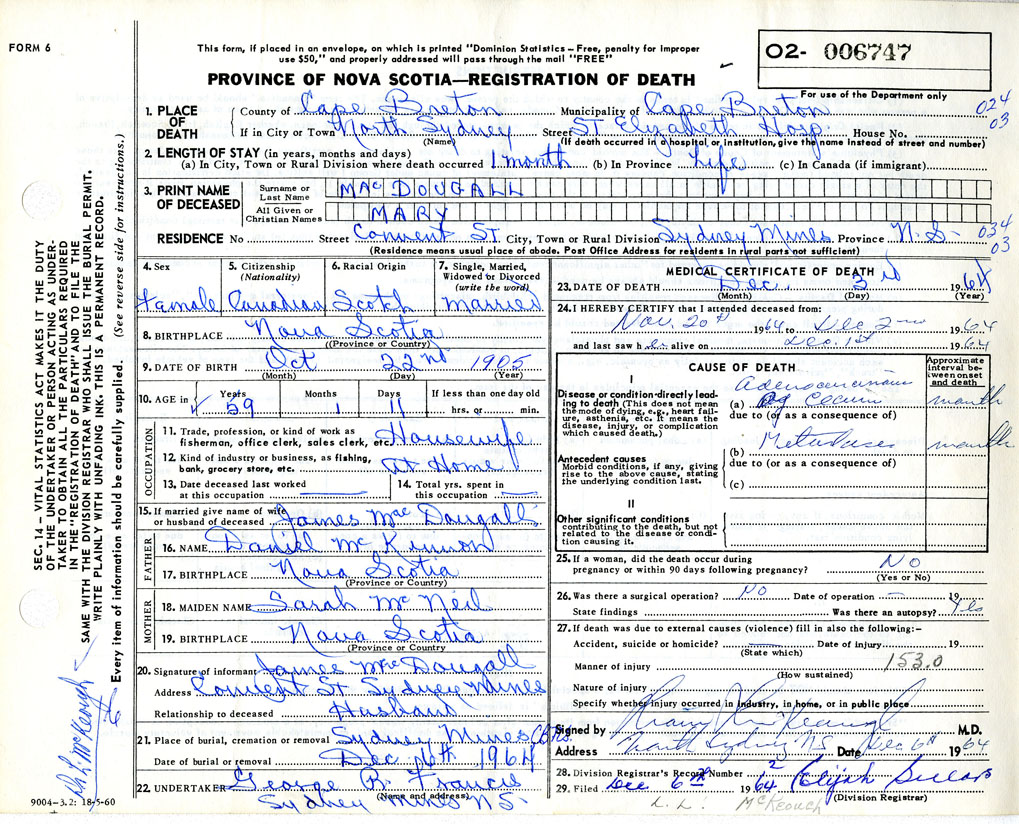 FORM 6
This form, if placed in an envelope, on which is printed "Dominion Statistics – Free, penalty for improper
use $50," and properly addressed will pass through the mail "FREE"
O2- 006747
For use of the Department only
PROVINCE OF NOVA SCOTIA—REGISTRATION OF DEATH
024
03
1. PLACE OF DEATH County of Cape Breton Municipality of Cape Breton
If in City or Town North Sydney Street St Elizabeth Hosp. House No.
(Name) (If death occurred in a hospital or institution, give the name instead of street and number)
2. LENGTH OF STAY (in years, months and days)
(a) In City, Town or Rural Division where death occurred 1 month (b) In Province Life (c) In Canada (if immigrant)
3. PRINT NAME OF DECEASED Surname or Last Name MAC DOUGALL
All Given or Christian Names MARY
RESIDENCE No Street Convent St. City, Town or Rural Division Sydney Mines Province N.S.
034
03
(Residence means usual place of abode. Post Office Address for residents in rural parts not sufficient)
4. Sex Female
5. Citizenship (Nationality) Canadian
6. Racial Origin Scotch
7. Single, Married, Widowed or Divorced (write the word) Married
8. BIRTHPLACE Nova Scotia
(Province or Country)
9. DATE OF BIRTH Oct 22nd 1905
(Month) (Day) (Year)
10. AGE in Years 59 Months 1 Days 11 If less than one day old hrs. or min.
OCCUPATION
11. Trade, profession, or kind of work as fisherman, office clerk, sales clerk, etc. Housewife
12. Kind of industry or business, as fishing, bank, grocery store, etc. at Home
13. Date deceased last worked at this occupation
14. Total yrs. spent in this occupation
15. If married give name of wife or husband of deceased James MacDougall
FATHER
16. NAME Daniel McKinnon
17. BIRTHPLACE Nova Scotia
(Province or Country)
MOTHER
18. MAIDEN NAME Sarah McNeil
19. BIRTHPLACE Nova Scotia
(Province or Country
20. Signature of informant James MacDougall
Address Convent St Sydney Mines
Relationship to deceased Husband
21. Place of burial, cremation or removal Sydney Mines
Date of burial or removal Dec 6th 1964
22. UNDERTAKER George R. Francis
(Name and address)
Sydney Mines N.S.
MEDICAL CERTIFICATE OF DEATH
23. DATE OF DEATH Dec. 3rd 1964
(Month) (Day) (Year)
24. I HEREBY CERTIFY that I attended deceased from:
Nov. 20th 1964 to Dec 2nd 1964
and last saw her alive on Dec. 1st 1964
CAUSE OF DEATH
Approximate interval between onset and death
I
Disease or condition directly leading to death (This does not mean the mode of dying, e.g., heart failure, asthenia, etc. It means the disease, injury, or complication which caused death.)
Adenocarcinoma
(a) of Cecum month
due to (or as a consequence of)
Antecedent causes
Morbid conditions, if any, giving rise to the above cause, stating the underlying condition last.
(b) Metastases month
due to (or as a consequence of)
(c)
II
Other significant conditions
contributing to the death, but not related to the disease or condition causing it.
25. If a woman, did the death occur during pregnancy or within 90 days following pregnancy? No
(Yes or No)
26. Was there a surgical operation? No Date of operation 19
State findings Was there an autopsy? Yes
27. If death was due to external causes (violence) fill in also the following:–
Accident, suicide or homicide? Date of injury 19
(State which)
Manner of injury 153.0
(How sustained)
Nature of injury
Specify whether injury occurred in industry, in home, or in public place
Signed by M.D.
Address North Sydney N.S. Date Dec 6th 1964
28. Division Registrar's Record Number 2
29. Filed Dec 6th 1964 Elijah
(Division Registrar)
L. L. McKEOUGH
SEC. 14 – VITAL STATISTICS ACT MAKES IT THE DUTY
OF THE UNDERTAKER OR PERSON ACTING AS UNDER-
TAKER TO OBTAIN ALL THE PARTICULARS REQUIRED
IN THE "REGISTRATION OF DEATH" AND TO FILE THE
SAME WITH THE DIVISION REGISTRAR WHO SHALL ISSUE THE BURIAL PERMIT.
WRITE PLAINLY WITH UNFADING INK. THIS IS A PERMANENT RECORD.
Every item of information should be carefully supplied. (See reverse side for instructions.)
9004–3.2: 18-5-60